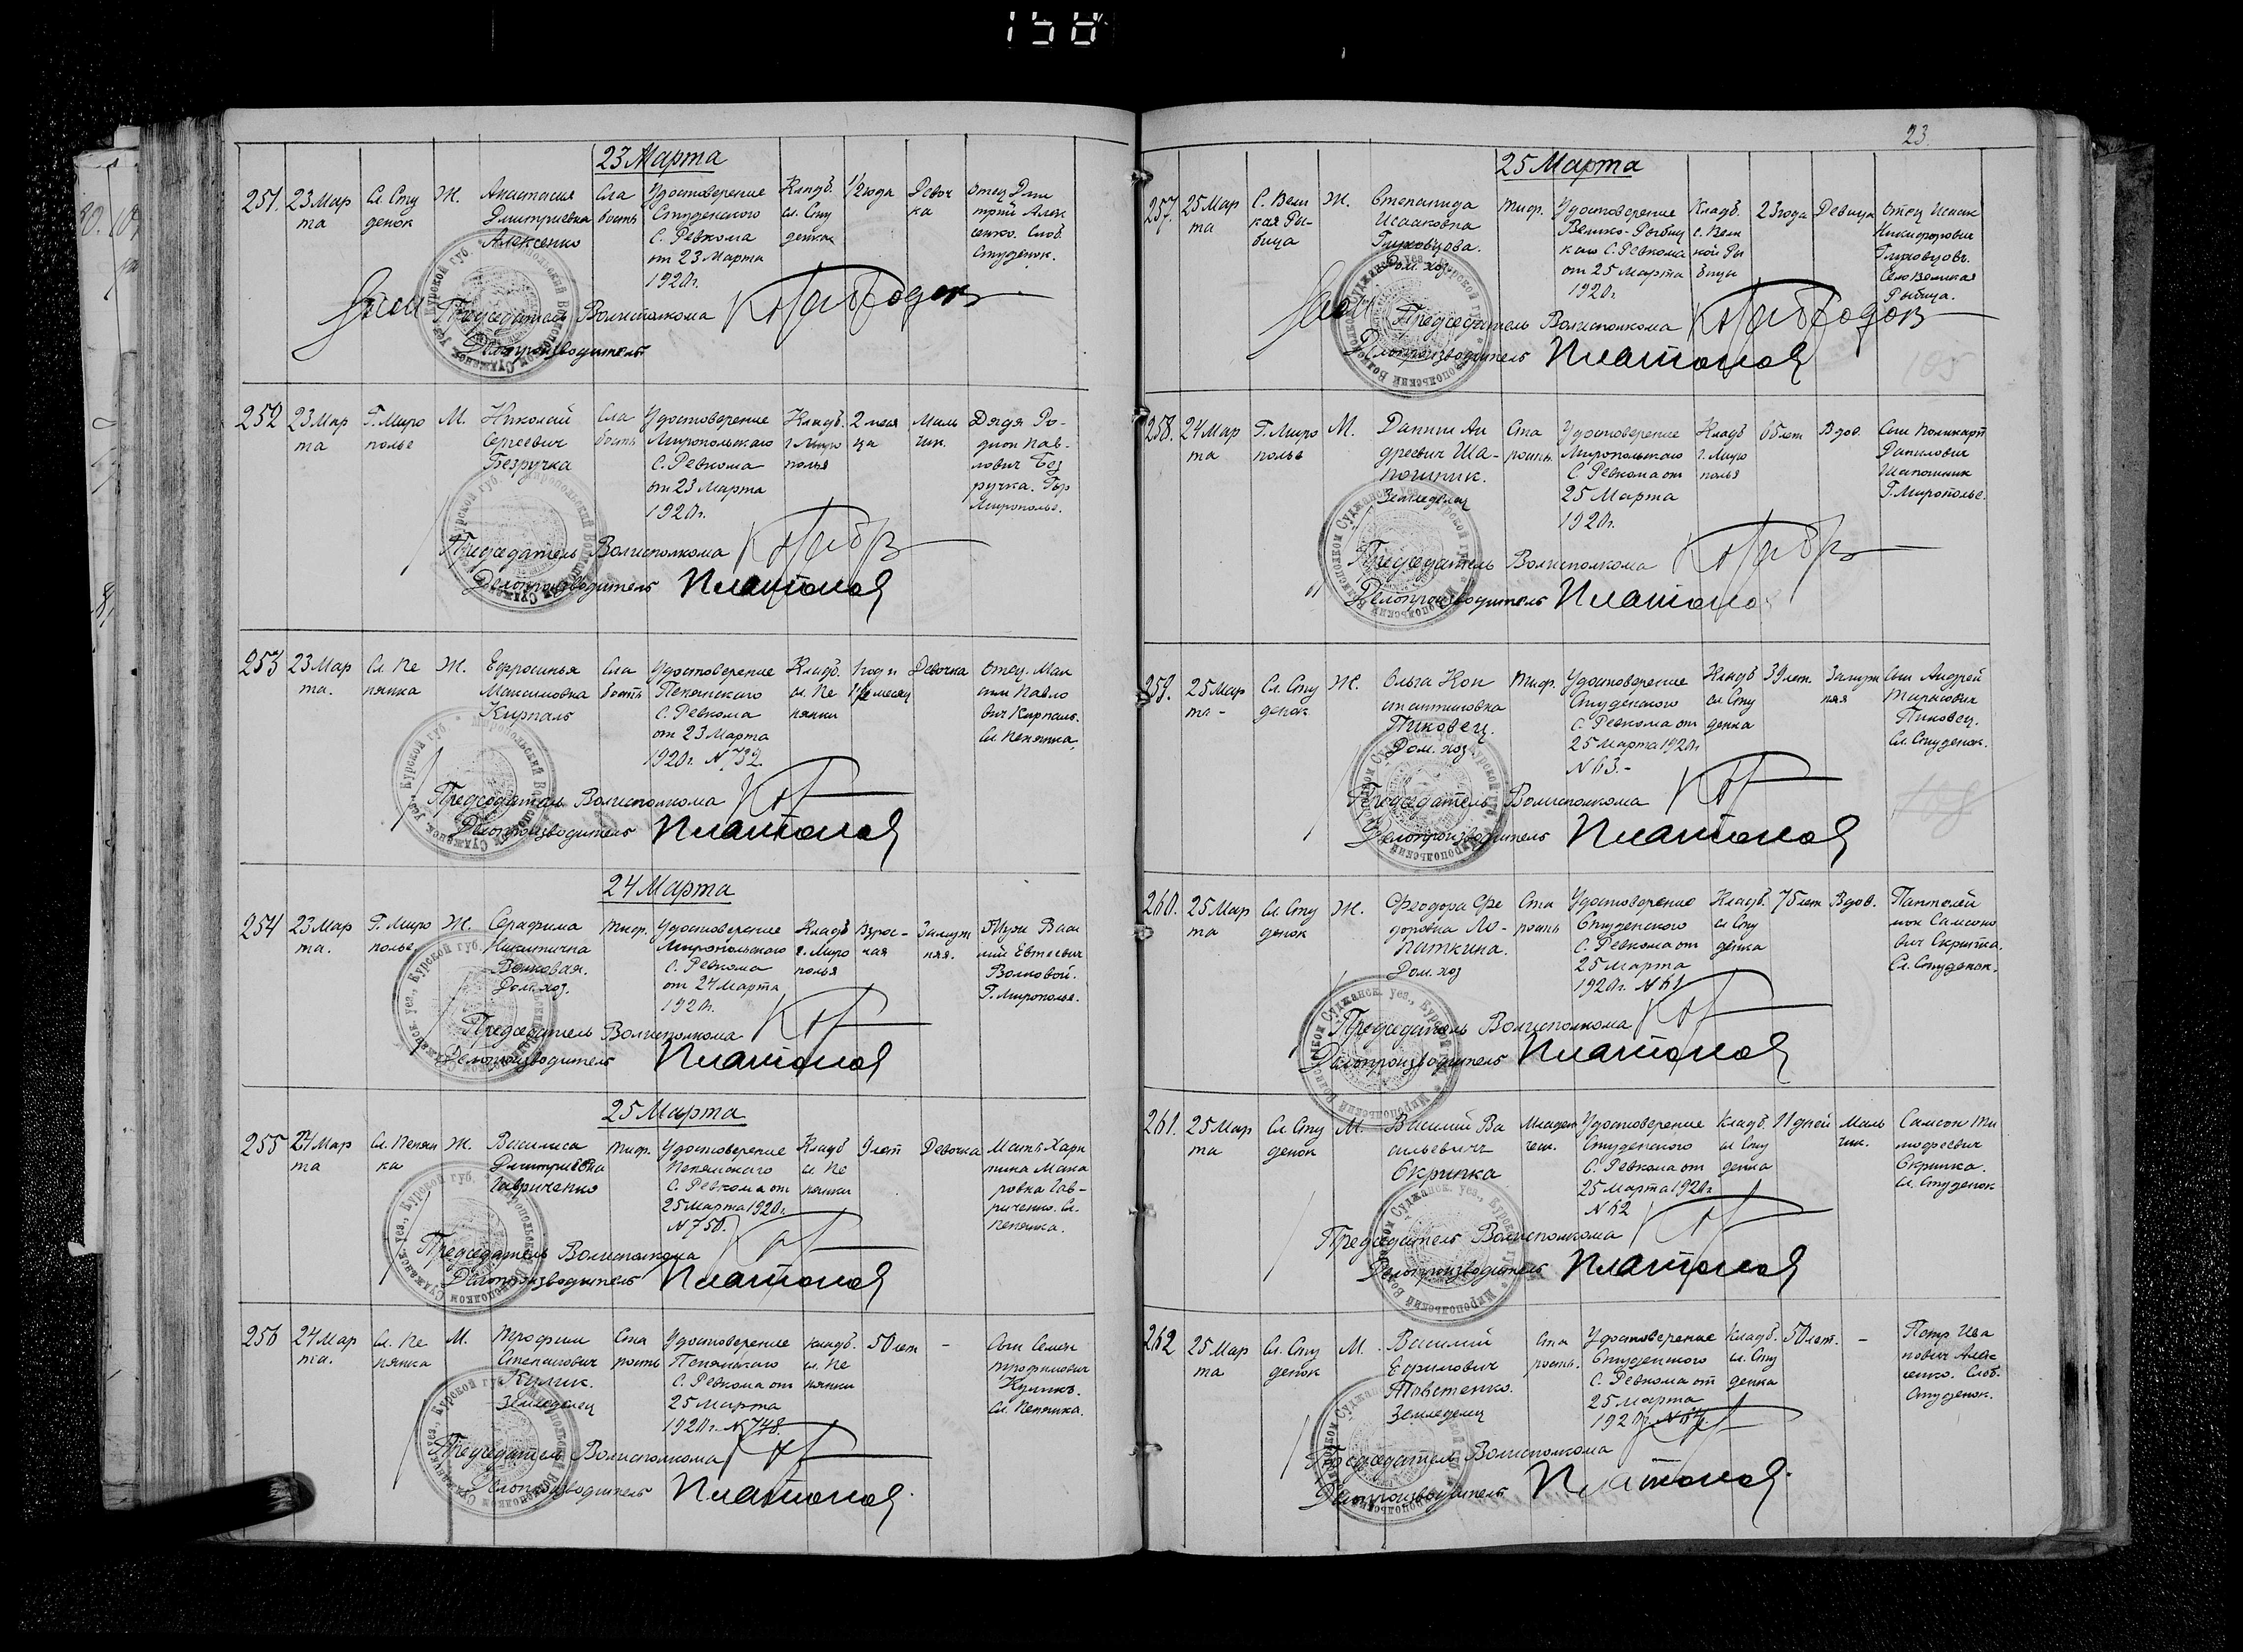 158
23 Марта
251. 23 Мар
та
Сл. Сту
денок
Ж.
Анастасия
Дмитриевна
Алексенко
Сла
бость
Удостоверение
Студенского
С. Ревкома
от 23 Марта
1920г.
Кладб.
сл. Сту
денка
1/2 года
Девоч
ка
Отец Дми
трий Алек
сенко. Слоб.
Студенок.
Председатель Волисполкома
Делопроизводитель
252 23 Мар
та
Г. Миро
полье
М.
Николай
Сергеевич
Безручка
Сла
бость
Удостоверение
Миропольскаго
С. Ревкома
от 23 Марта
1920г.
Кладб.
г. Миро
полья
2 меся
ца
Маль
чик.
Дядя Ро-
дион Пав-
лович Без
ручка. Гор
Мирополье.
Председатель Волисполкома
Делопроизводитель Платонов
253 23 Мар
та.
Сл. Пе
нянка
Ж.
Ефросинья
Максимовна
Кирпаль
Сла
бость
Удостоверение
Пенянскаго
С. Ревкома
от 23 Марта
1920г. N 732
Кладб.
сл. Пе
нянки
1 год и
месяц
Девочка
Отец. Мак
сим Павло
вич Кирпаль.
Сл. Пенянка.
Председатель Волисполкома
Делопроизводитель Платонов
24 Марта
254 23 Мар
та.
Г. Миро
полье
Ж.
Серафима
Никитична
Волковая.
Дом. хоз.
Тиф.
Удостоверение
Миропольского
С. Ревкома
от 24 Марта
1920г.
Кладб
г. Миро
полья
Взрос-
лая
Замуж
няя.
Муж Васи
лий Евтеевич
Волковой.
Г. Мирополье.
Председатель Волисполкома
Делопроизводитель Платонов
25 Марта
255 24 Мар
та
Сл. Пенян
ка
Ж.
Василиса
Дмитриевна
Гавриченко
Тиф.
Удостоверение
Пенянского
С. Ревкома от
25 Марта 1920г.
N 750.
Кладб
сл. Пе
нянки
9 лет
Девочка
Мать Хари
тина Мака
ровна Гав-
риченко. Сл.
Пенянка.
Председатель Волисполкома
Делопроизводитель Платонов
256 24 Мар
та.
Сл. Пе
нянка
М.
Трофим
Степанович
Кулик.
Земледелец
Ста
рость
Удостоверение
Пенянскаго
С. Ревкома от
25 Марта
1920г. N 748.
кладб.
сл. Пе
нянки
50 лет
-
Сын Семен
Трофимович
Куликъ.
Сл. Пенянка.
Председатель Волисполкома
Делопроизводитель Платонов.
23.
25 Марта
257. 25 Мар
та
С. Вели
кая Ры-
бица
Ж.
Степанида
Исааковна
Глуховцова.
Дом. хоз.
Тиф.
Удостоверение
Велико-Рыбиц
каго С. Ревкома
от 25 Марта
1920г.
Кладб.
с. Вели
кой Ры
бицы
23 года
Девица
Отец Исаак
Никифорович
Глуховцовъ.
Село Великая
Рыбица.
Председатель Волисполкома
Делопроизводитель Платонов
105
258. 24 Мар
та
Г. Миро
полье
М.
Данил Ан
дреевич Ша-
пошник.
Земледелец
Ста
рость
Удостоверение
Миропольскаго
С. Ревкома от
25 Марта
1920г.
Кладб
г. Миро
полья
65 лет
Вдов.
Сын Поликарп
Данилович
Шапошник
Г. Мирополье.
Председатель Волисполкома
Делопроизводитель Платонов
259. 25 Мар
та -
Сл. Сту
денок
Ж.
Ольга Кон
стантиновна
Пиковец.
Дом. хоз
Тиф.
Удостоверение
Студенского
С. Ревкома от
25 марта 1920г
N 63.-
Кладб
сл Сту
денка
39 лет.
Замуж
няя
Сын Андрей
Пиковец.
Сл. Студенок.
Председатель Волисполкома
Делопроизводитель Платонов
260. 25 Мар
та
Сл. Сту
денок
Ж.
Феодора Фе
доровна Ло-
паткина.
Дом. хоз
Ста
рость
Удостоверение
Студенского
С. Ревкома от
25 Марта
1920г. N 61
Кладб.
сл Сту
денка
75 лет
Вдов.
Пантелей
мон Самсоно
вич Скрипка.
Сл. Студенок.
Председатель Волисполкома
Делопроизводитель Платонов
261. 25 Мар
та
Сл. Сту
денок
М.
Василий Ва
сильевич
Скрипка
Младен
чик.
Удостоверение
Студенского
С. Ревкома от
25 Марта 1920г
N 62
Кладб.
сл Сту
денка
11 дней
Маль
чик.
Самсон Ти
мофеевич
Скрипка.
Сл. Студенок
Председатель Волисполкома
Делопроизводитель Платонов
262 25 Мар
та
Сл. Сту
денок
М.
Василий
Ефимович
Товстенко.
Земледелец
Ста
рость.
Удостоверение
Студенского
С. Ревкома от
25 марта
1920г. N 64.
Кладб.
сл. Сту
денка
50 лет.
-
Петр Ива
нович Алек
сенко. Слоб.
Студенок.
Председатель Волисполкома
Делопроизводитель Платонов.